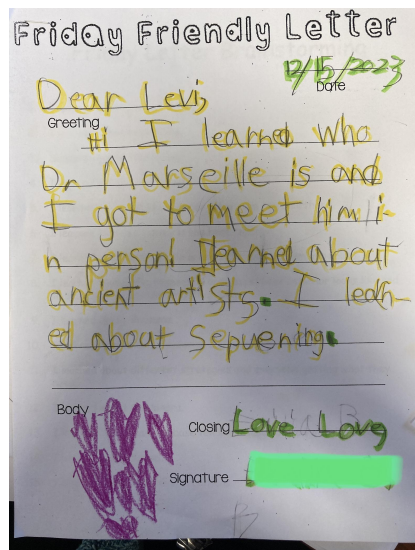 Friday Friendly Letter
12/15/2023
Date
Dear Levi,
Greeting
Hi I learned who
Dr Marseille is and
I got to meet him i-
n person I learned about
ancient artists. I learn-
ed about Sepuening.
Body
Closing Love Love
Signature